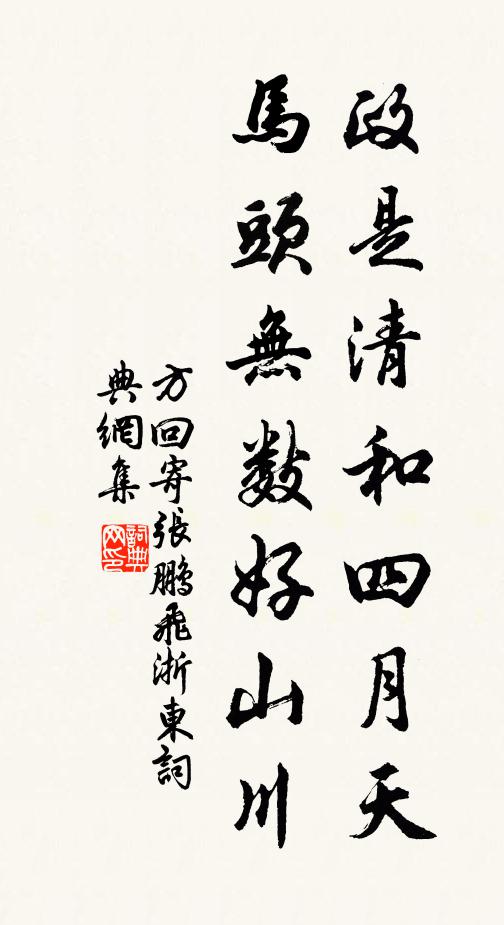 政是清和四月天
馬頭無數好山川
方回寄張鵬飛浙東詞
典網集
詞典
网印